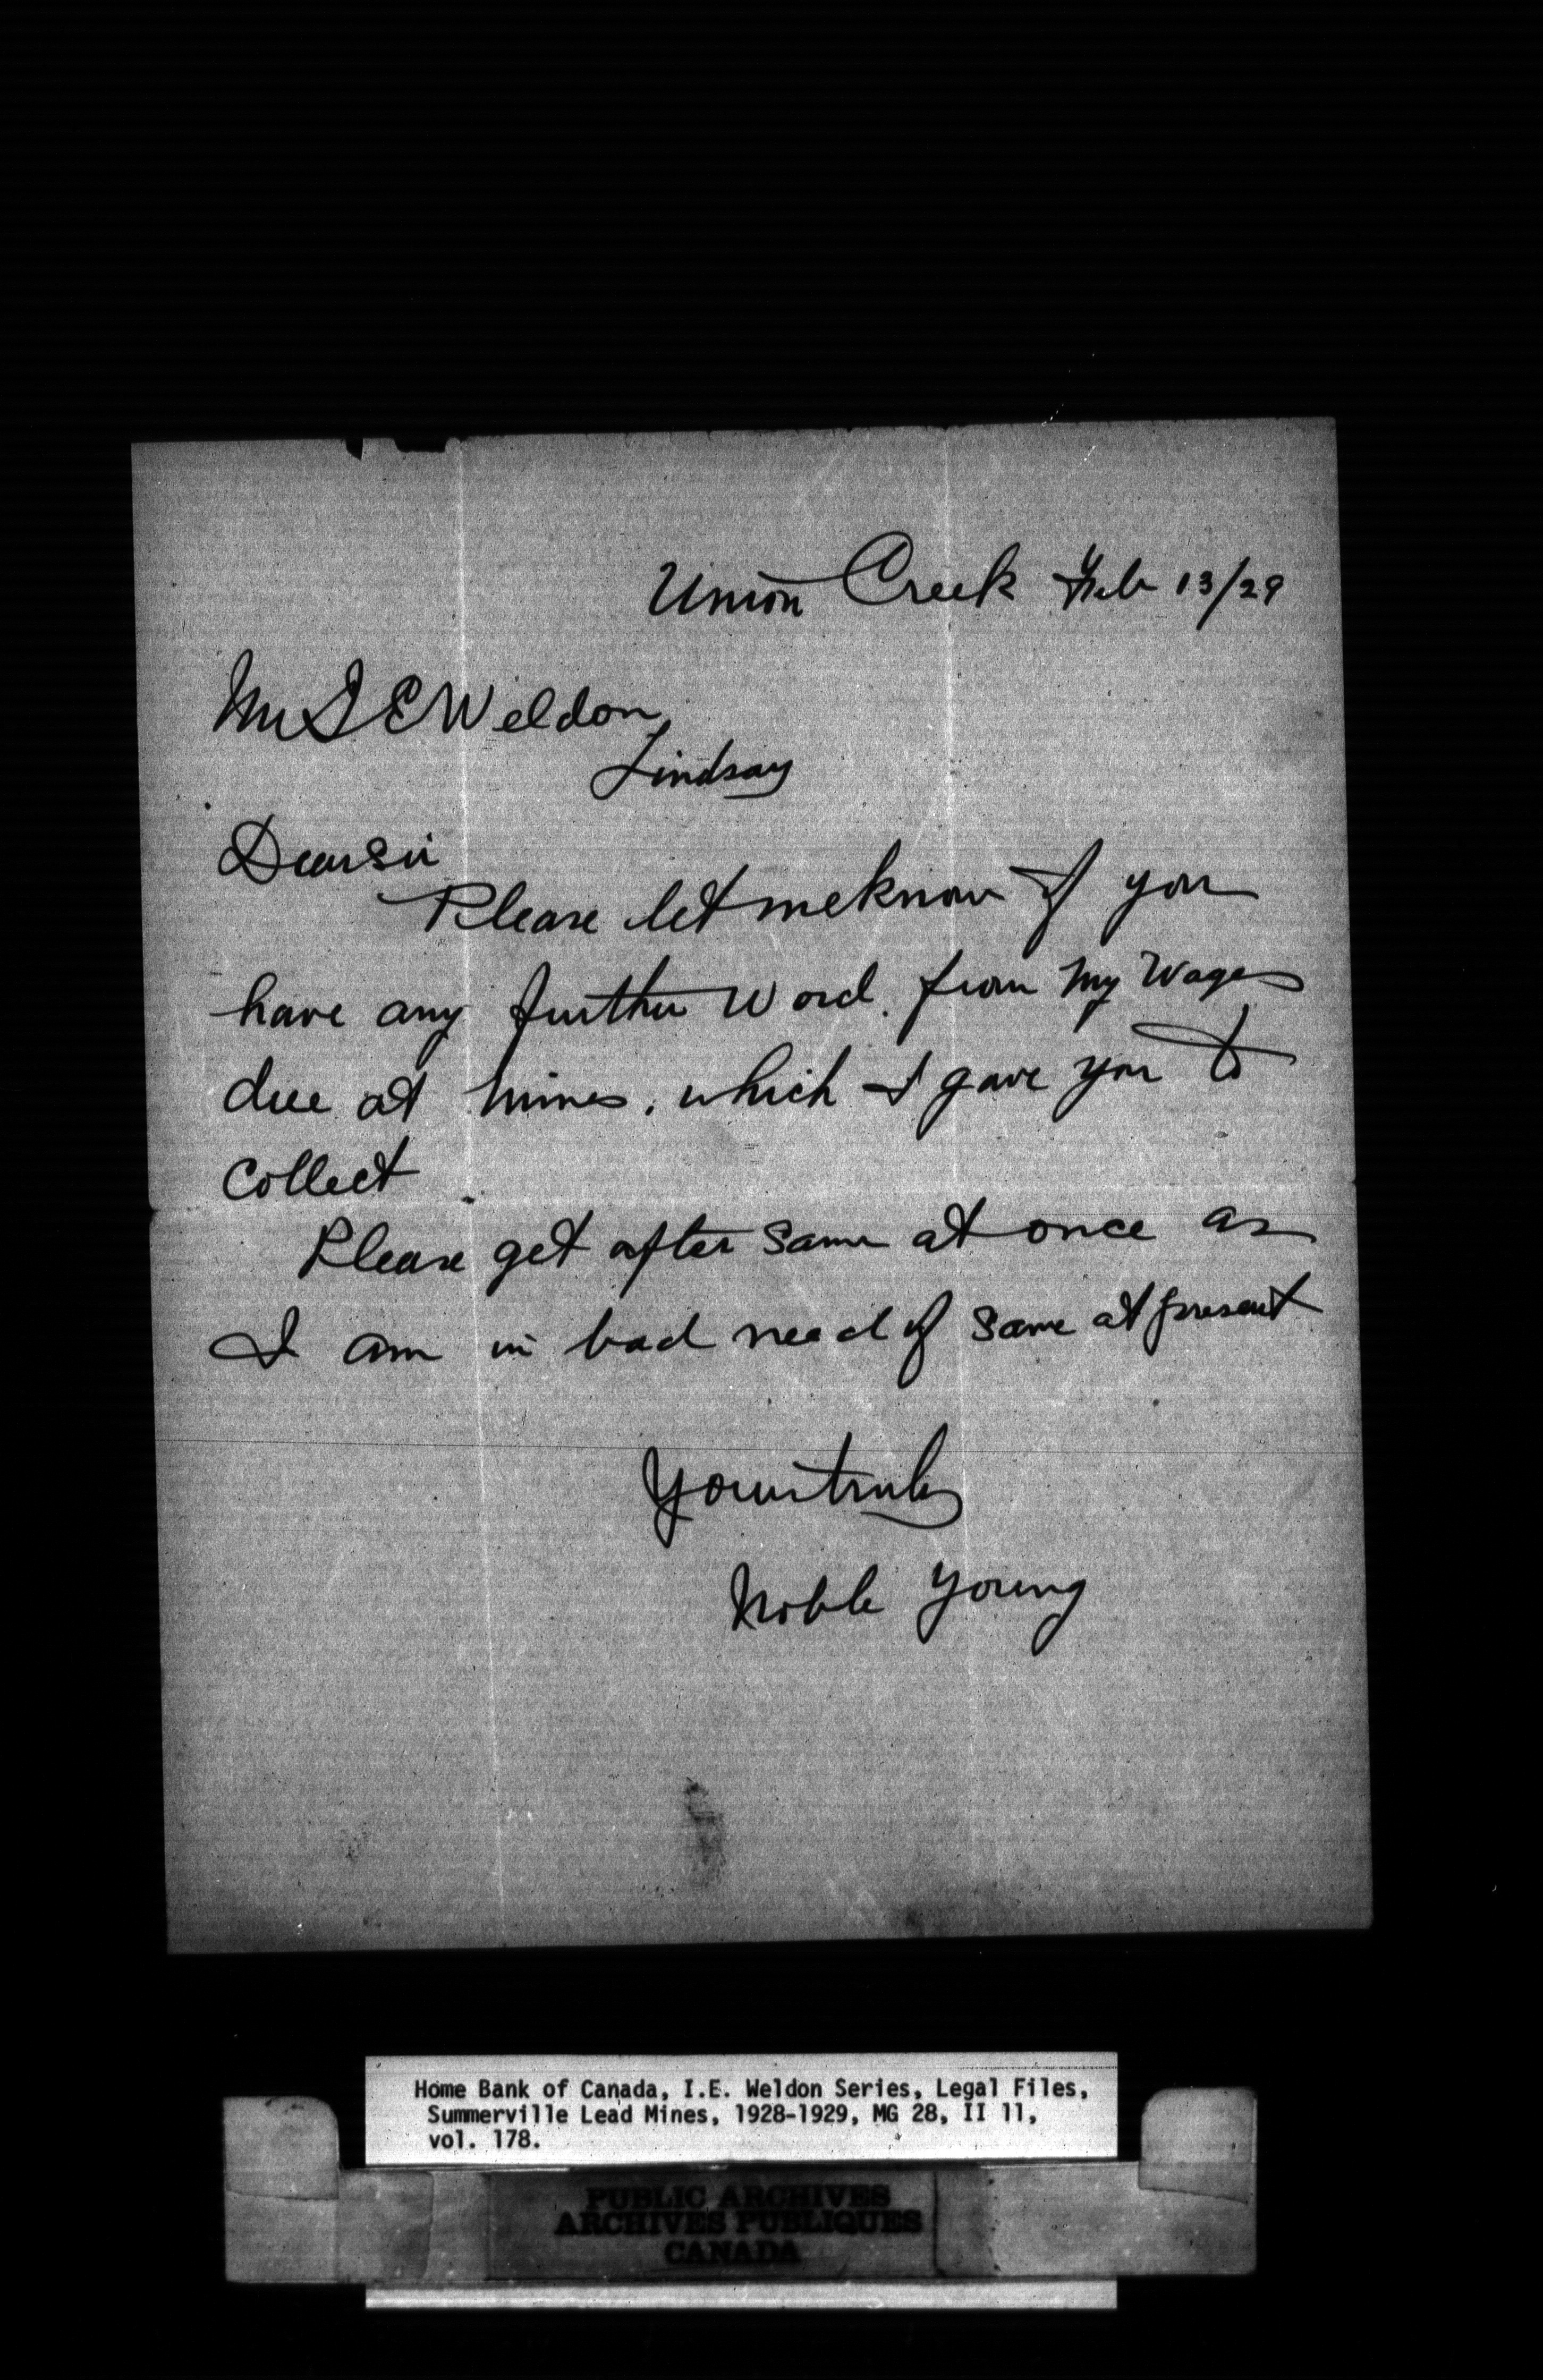 Union Creek Feb 13/29
Mr I E Weldon
Lindsay
Dear Sir
Please let me know if you
have any further word. from my wages
due at mines, which I gave you to
collect.
Please get after same at once as
I am in bad need of same at present
Yours truly
Noble Young
Home Bank of Canada, I.E. Weldon Series, Legal Files,
Summerville Lead Mines, 1928-1929, MG 28, II 11,
vol. 178.
PUBLIC ARCHIVES
ARCHIVES PUBLIQUES
CANADA